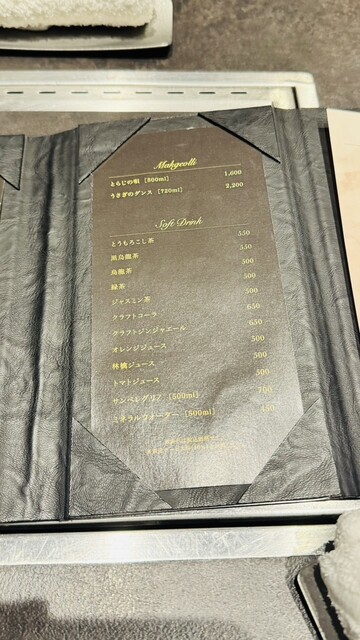 Makgeolli
とらじの唄 [500ml] 1,600
うさぎのダンス [720ml] 2,200
Soft Drink
とうもろこし茶 550
黒烏龍茶 550
烏龍茶 500
緑茶 500
ジャスミン茶 500
クラフトコーラ 650
クラフトジンジャエール 650
オレンジジュース 500
林檎ジュース 500
トマトジュース 500
サンペレグリノ [500ml] 700
ミネラルウォーター [500ml]